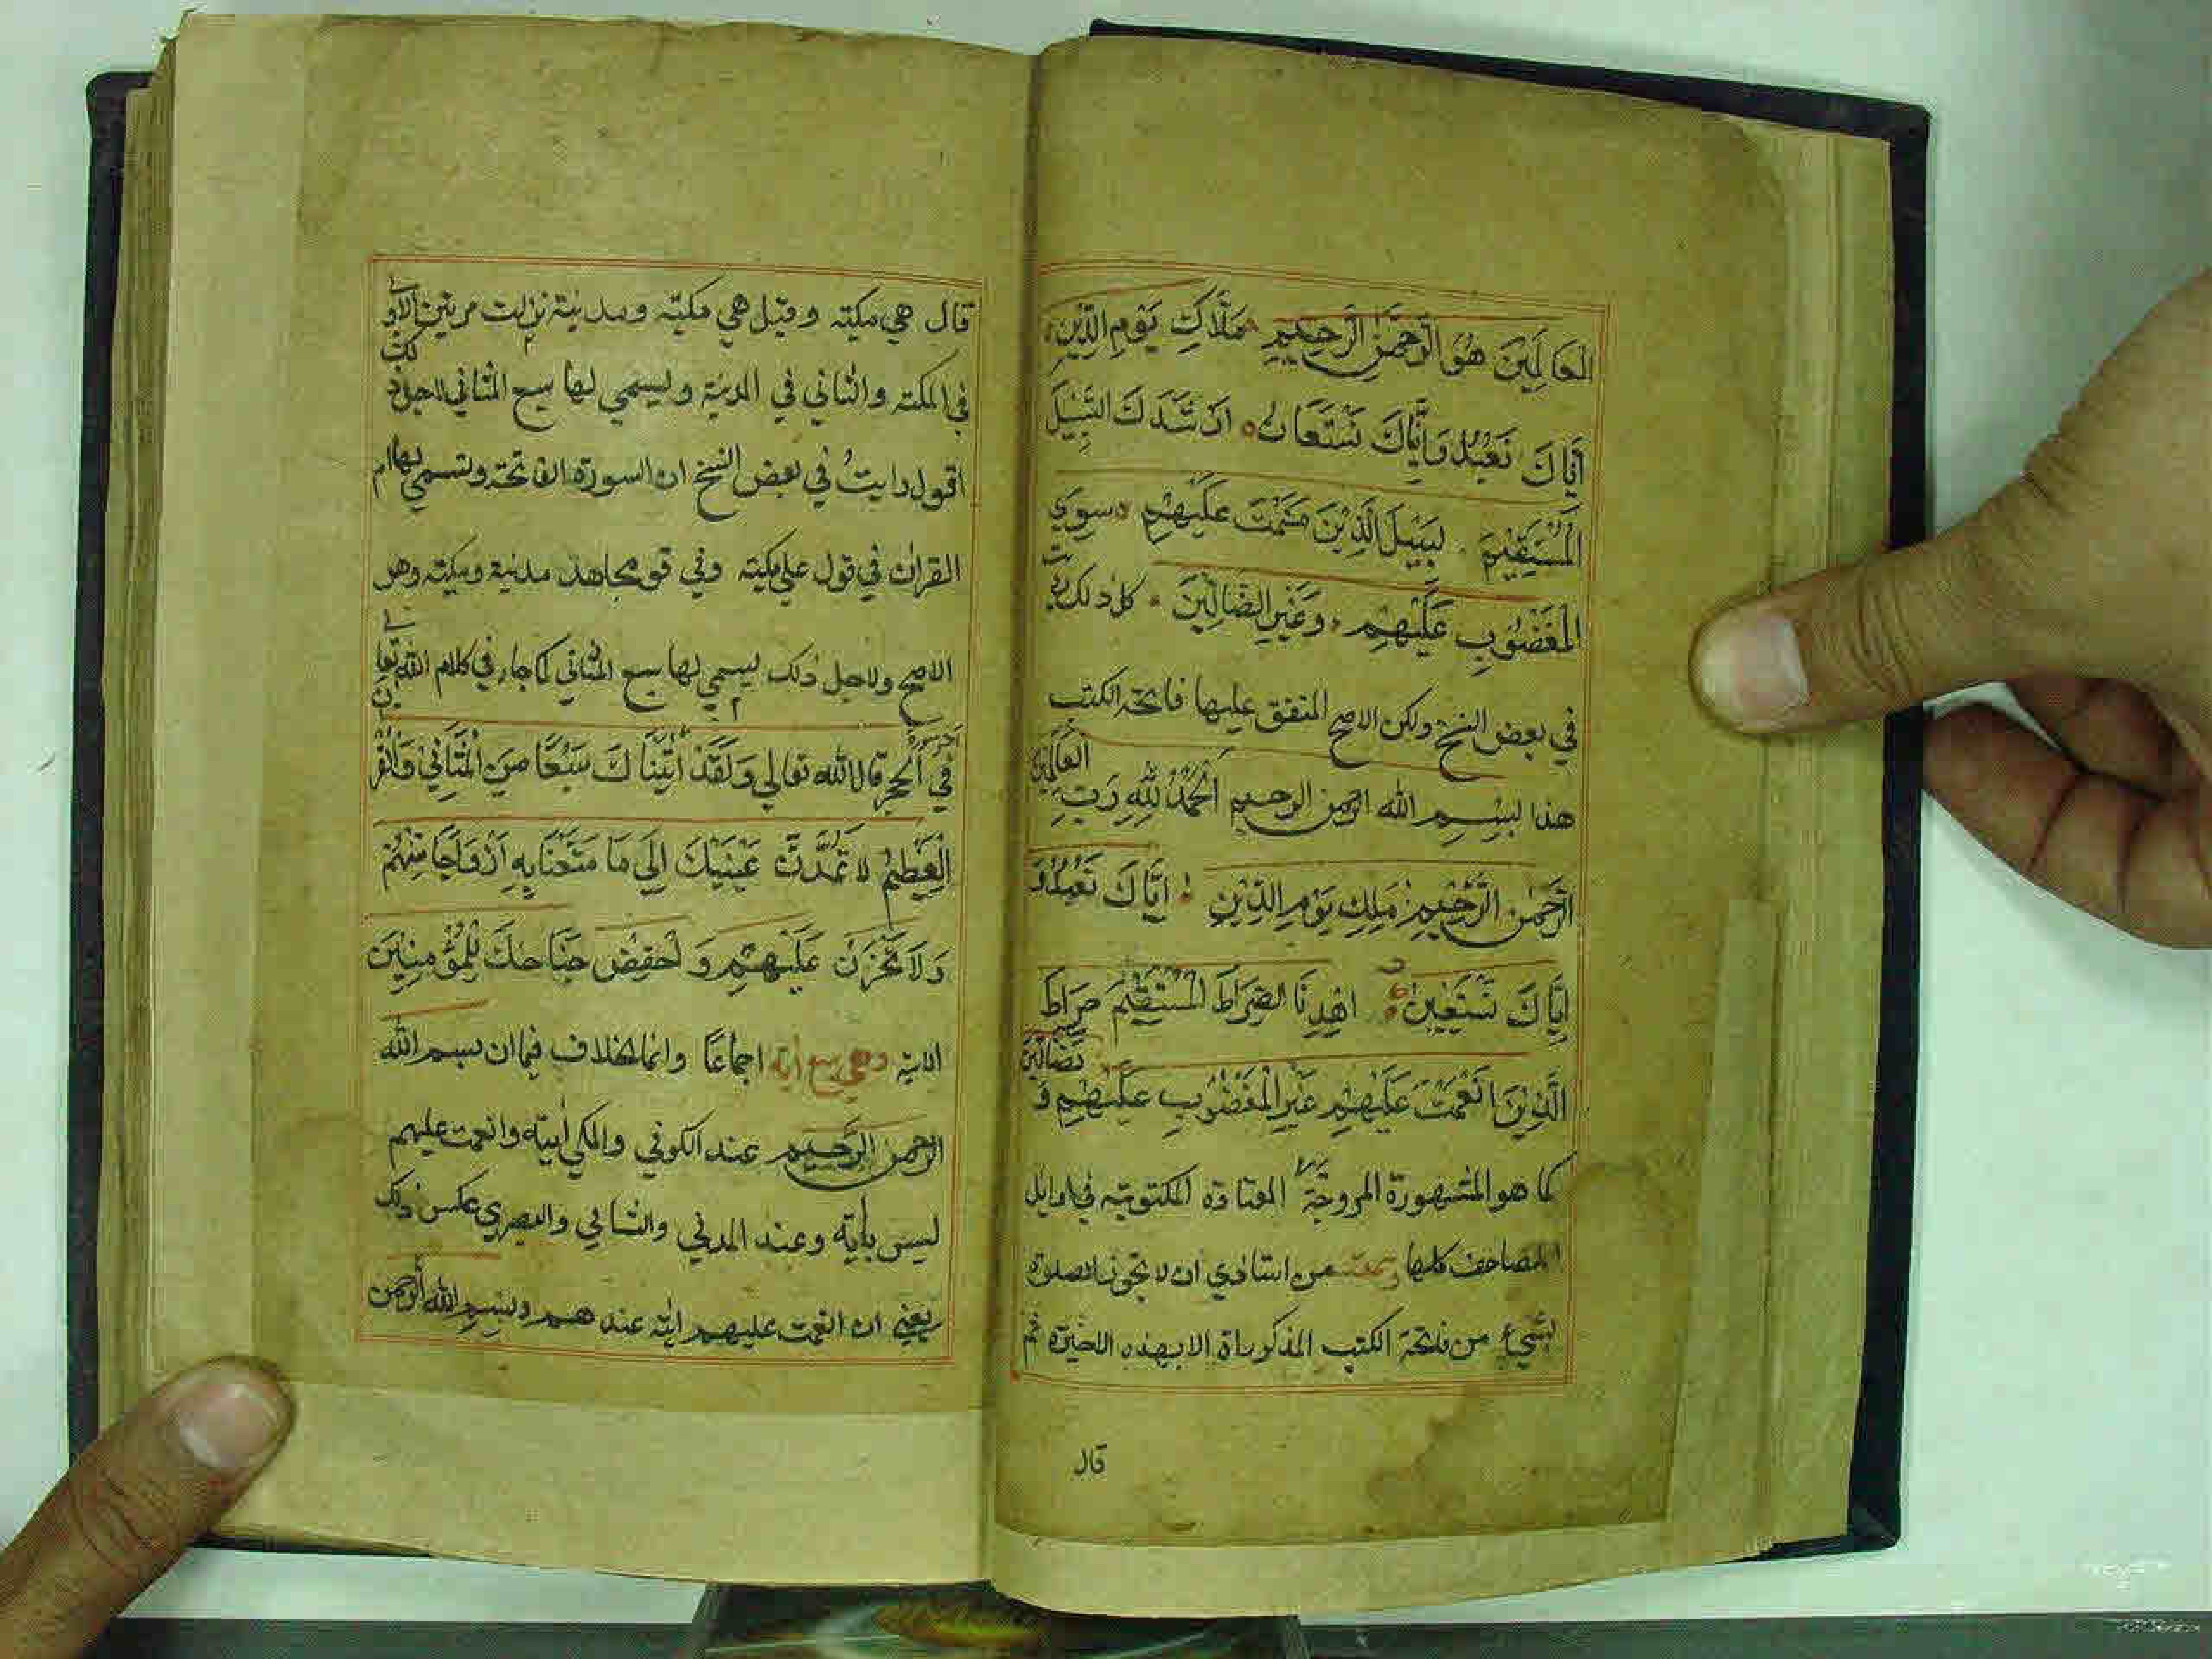 العَالَمِينَ هُوَ الرَّحمٰنُ الرَّحِيمِ مَلَّاكِ يَوْمِ الدِّينِ
اَيَّاكَ نَعْبُدُ وَاِيَّاكَ نَسْتَعَانُ السَّبِيْلَ
المُسْتَقِيْمَ لسَبِيْلَ الَّذِيْنَ عَلَيْهِمْ سِوَي
المَغْضُوْبِ عَلَيْهِمْ وَغَيْرِ الضَّالِّيْنَ كل ذلك
في بعض النسخ ولكن الاصح المتفق عليها فاتحة الكتب
هذا بِسْمِ الله الرحمن الرحيم اَلْحَمْدُ لِلّٰهِ رَبِّ العَالَمِيْنَ
الرَّحمٰنِ الرَّحِيْمِ مَلِكِ يَوْمِ الدِّيْنِ اِيَّاكَ نَعْبُدُ وَ
اِيَّاكَ نَسْتَعِيْنُ اهْدِنَا الصِّرَاطَ المُسْتَقِيْمَ صِرَاطَ
الَّذِيْنَ اَنْعَمْتَ عَلَيْهِمْ غَيْرِ المَغْضُوْبِ عَلَيْهِمْ وَ
كما هو المشهورة المروجة المكتوبة في اوايل
المصاحف كلها من استاذي ان لا يجوز الصلوة
بشيء من فاتحة الكتب المذكورات الا بهذه الاخيرة ثم
قال
قال هي مكيته وقيل هي مكيته ومدنية نزلت مرتين الاولي
في المكته والثاني في المدينة ويسمي لها سبع المثاني
اقول رايتُ في بعض النسخ ان السورة الفاتحة وتسمي لها ام
القران في قول علي مكيته وفي قو مجاهد مدنية ومكيته وهو
الاصح ولاجل ذلك يسمي لها سبع المثاني كما جاء في كلام الله تعالي
في الحجر قال الله تعالي وَلَقَدْ اٰتَيْنَاكَ سَبْعًا مِنَ الْمَثَانِيْ وَالْقُرْاٰنَ
الْعَظِيْمَ لَا تَمُدَّنَّ عَيْنَيْكَ اِلَي مَا مَتَّعْنَا بِهِ اَزْوَاجًا مِنْهُمْ
وَلَا تَحْزَنْ عَلَيْهِمْ وَاخْفِضْ جَنَاحَكَ لِلْمُؤْمِنِيْنَ
الاية وهي سبع اية اجماعًا وانما الخلاف فيما ان بسم الله
الرحمن الرَّحِيم عند الكوفي والمكي اٰيته وانعمت عليهم
ليس بأيته وعند المدني والشامي والبصري عكس ذلك
يعني ان انعمت عليهم ايته عند هم وبسم الله الرحمن